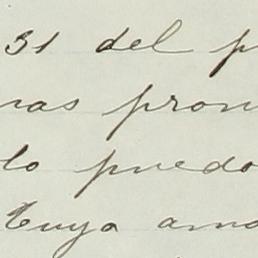 31 del p
nas pron
lo puedo
tuya ama